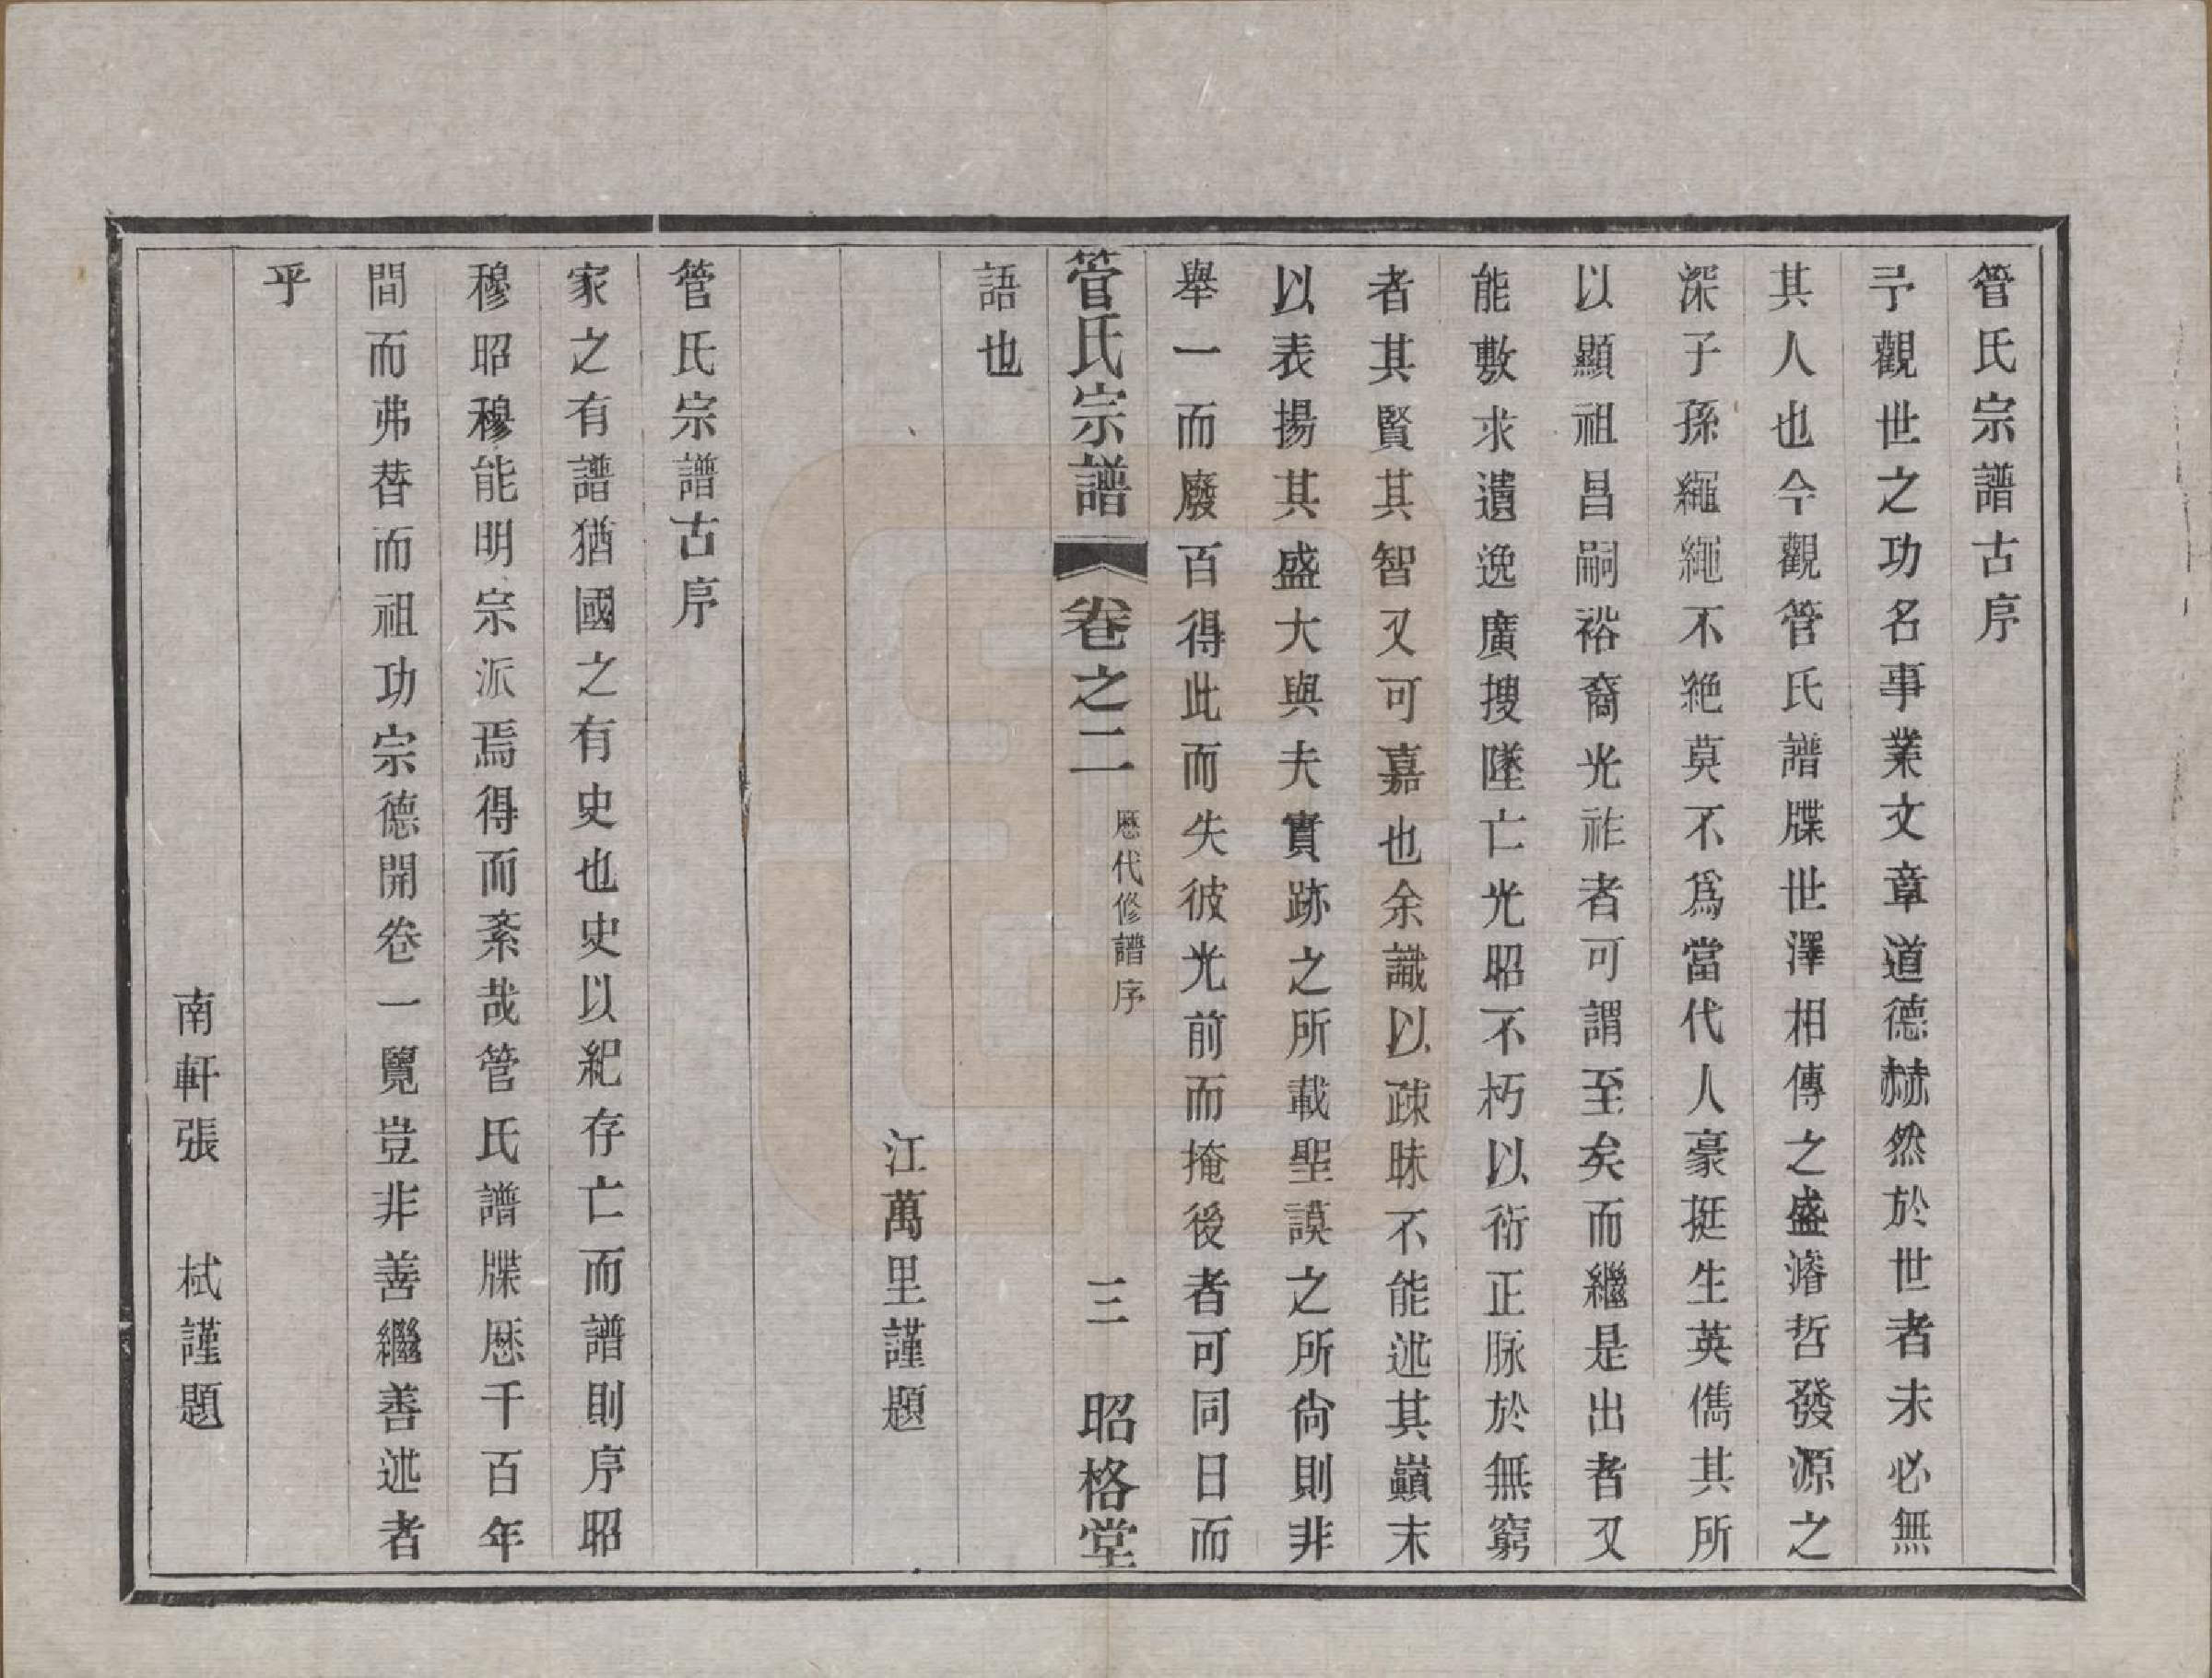 管氏宗譜古序
予觀世之功名事業文章道德赫然於世者未必無
其人也今觀管氏譜牒世澤相傳之盛濬哲發源之
深子孫繩繩不絶莫不爲當代人豪挺生英儁其所
以顯祖昌嗣裕裔光祚者可謂至矣而繼是出者又
能敷求遺逸廣搜墜亡光昭不朽以衍正脉於無窮
者其賢其智又可嘉也余識以疎昧不能述其巔末
以表揚其盛大與夫實跡之所載聖謨之所尙則非
舉一而廢百得此而失彼光前而掩後者可同日而
管氏宗譜 卷之二 歷代修譜序 三 昭格堂
語也
江萬里謹題
管氏宗譜古序
家之有譜猶國之有史也史以紀存亡而譜則序昭
穆昭穆能明宗派焉得而紊哉管氏譜牒歷千百年
間而弗替而祖功宗德開卷一覽豈非善繼善述者
乎
南軒張 栻謹題